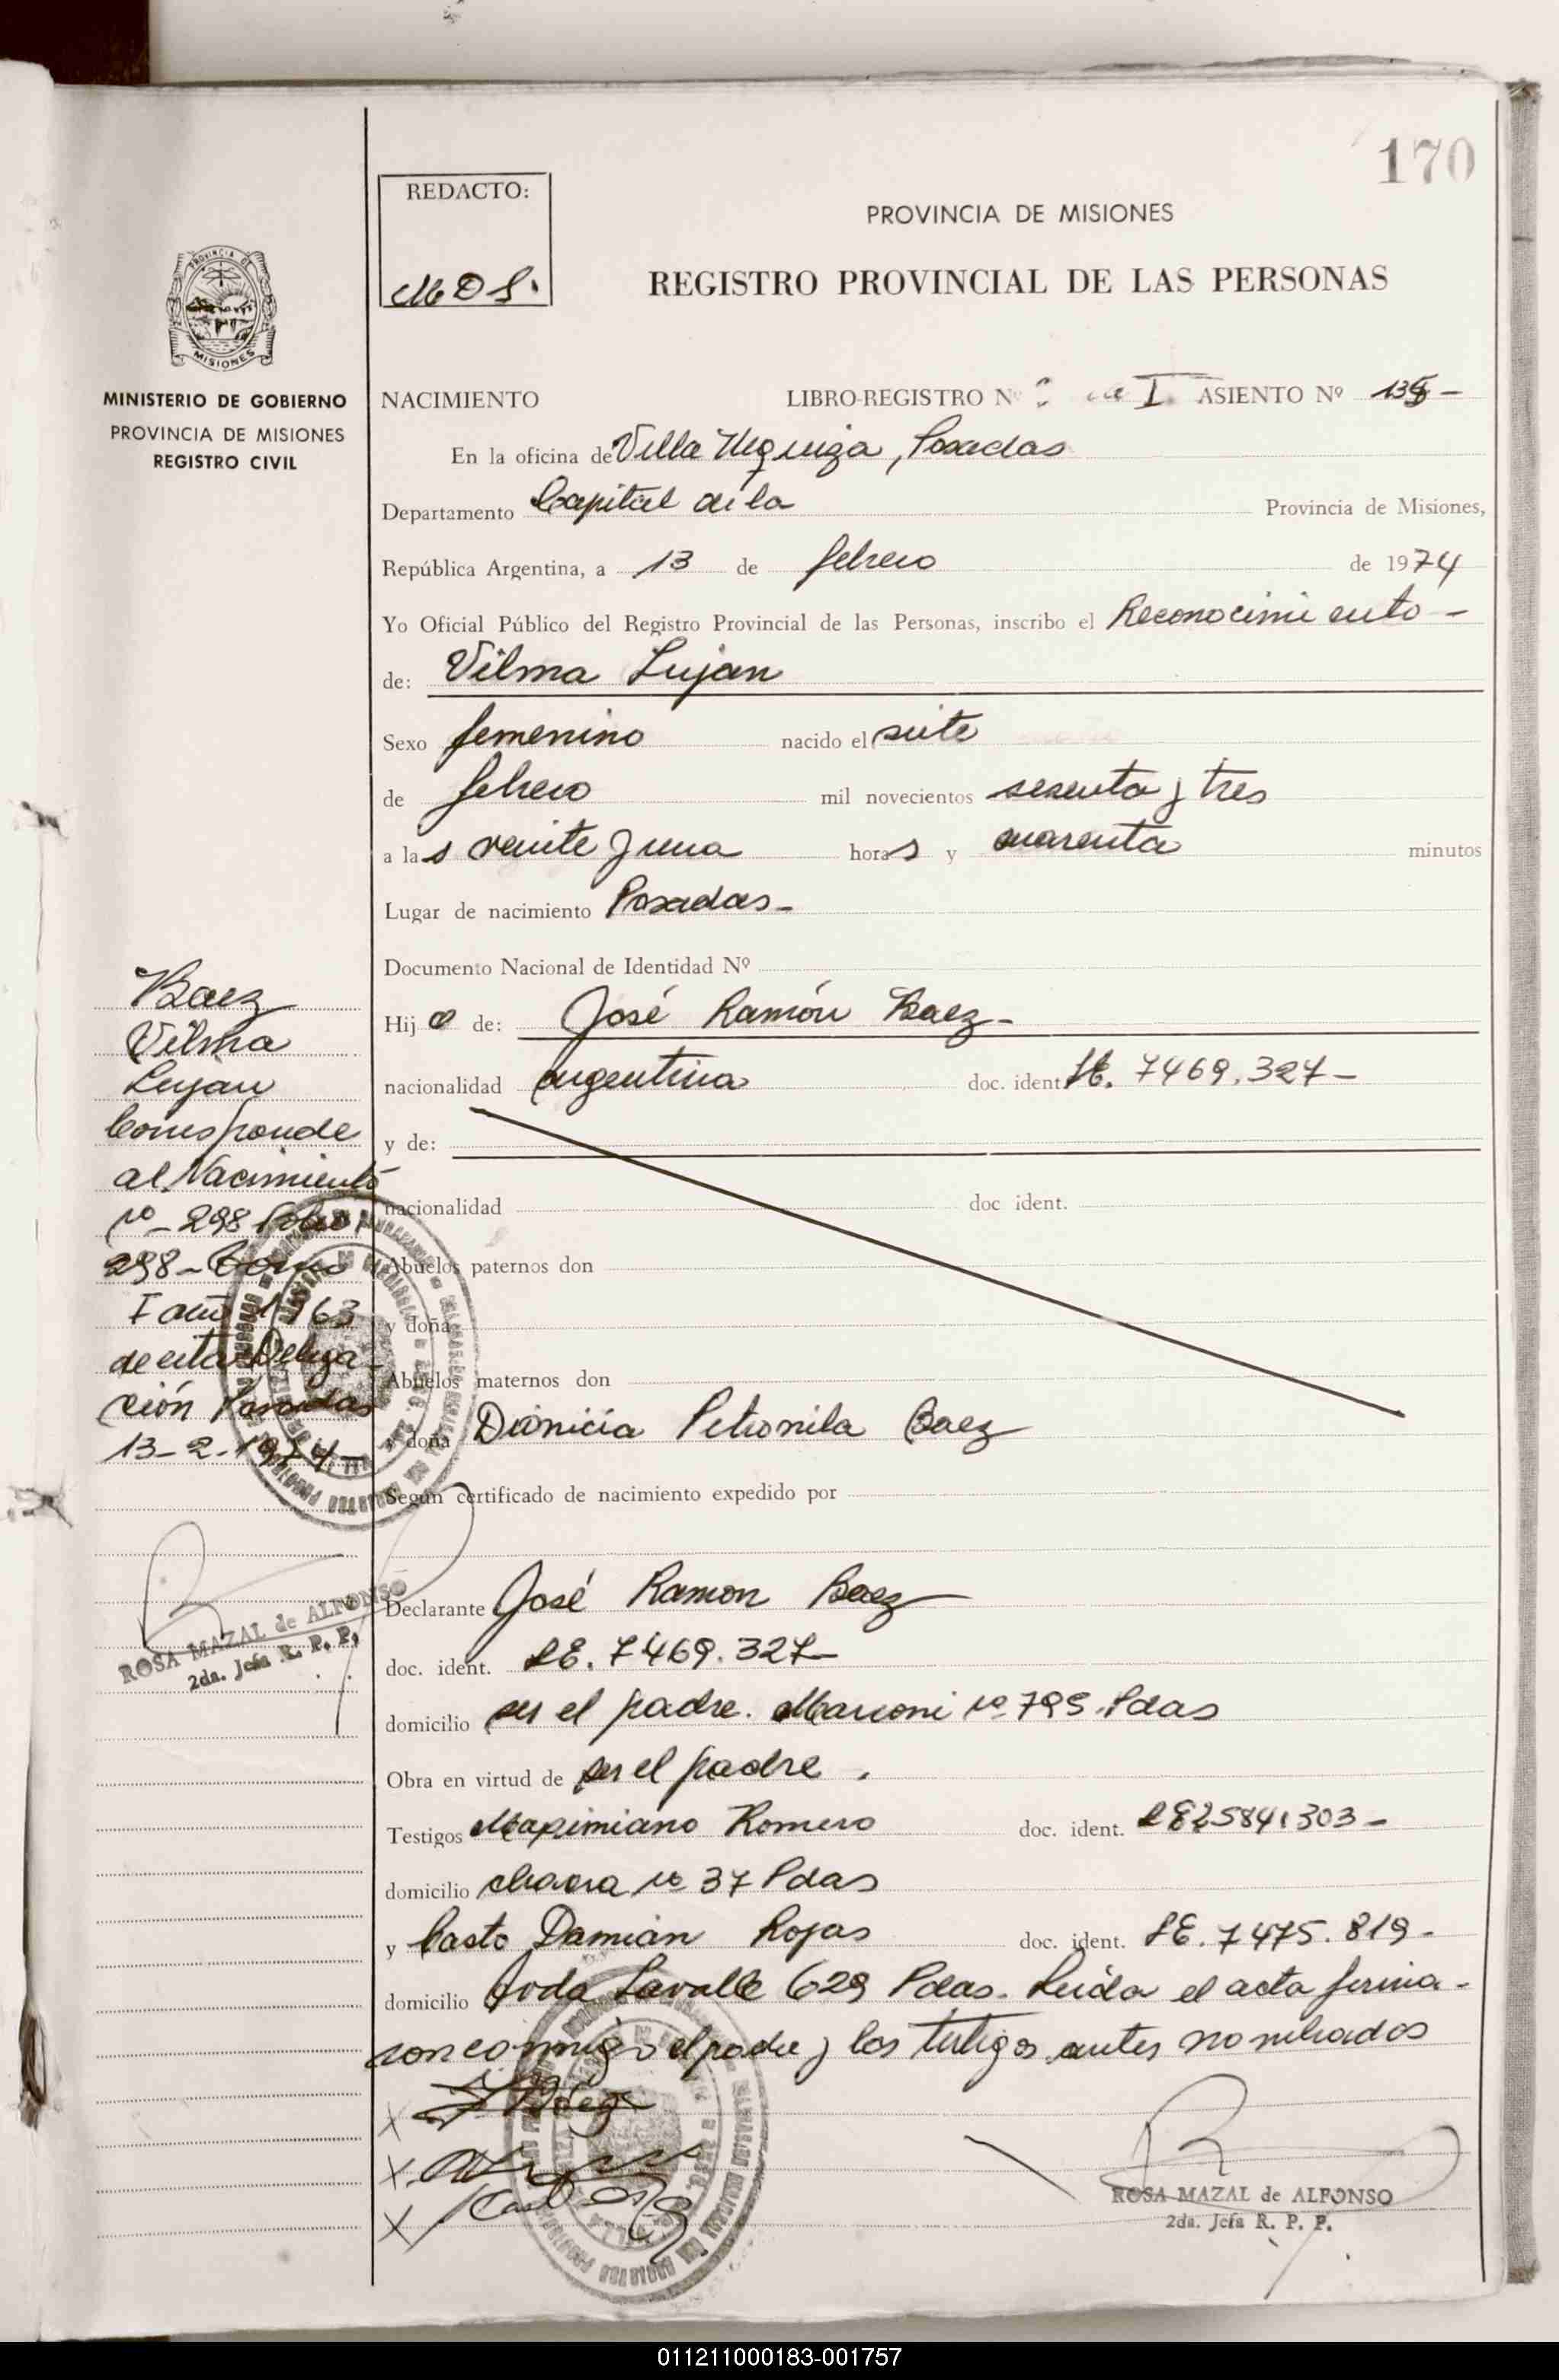 170
REDACTO:
PROVINCIA DE MISIONES
REGISTRO PROVINCIAL DE LAS PERSONAS
PROVINCIA DE
MISIONES
MINISTERIO DE GOBIERNO
PROVINCIA DE MISIONES
REGISTRO CIVIL
NACIMIENTO LIBRO-REGISTRO Nº I ASIENTO Nº
En la oficina de Villa Urquiza, Posadas
Departamento Capital de la Provincia de Misiones,
República Argentina, a 13 de febrero de 1974
Yo Oficial Público del Registro Provincial de las Personas, inscribo el Reconocimiento -
de: Vilma Lujan
Sexo femenino nacido el siete
de febrero mil novecientos sesenta y tres
a las veinte y una horas y cuarenta minutos
Lugar de nacimiento Posadas -
Documento Nacional de Identidad Nº
Hij de: José Ramón Baez -
nacionalidad argentina doc. ident. LE. 7469.327 -
y de:
nacionalidad doc ident.
Abuelos paternos don
y doña
Abuelos maternos don
y doña Petronila Baez
Según certificado de nacimiento expedido por
Declarante José Ramon Baez
doc. ident. LE. 7469.327 -
domicilio ser el padre. Marconi nº Pdas
Obra en virtud de ser el padre.
Testigos Maximiano Romero doc. ident.
domicilio chacra nº 37 Pdas
y Casto Damián Rojas doc. ident. LE. 7475.819 -
domicilio Avda Lavalle 629 Pdas. Leída el acta firma-
ron conmigo el padre y los testigos antes nombrados
Baez
Vilma
Lujan
Corresponde
al Nacimiento
nº - 298 Folio
298 - Tomo
I año 1963
de esta Delega-
ción Posadas
13-2-1974 -
ROSA MAZAL de ALFONSO
2da. Jefa R. P. P.
ROSA MAZAL de ALFONSO
2da. Jefa R. P. P.
011211000183-001757